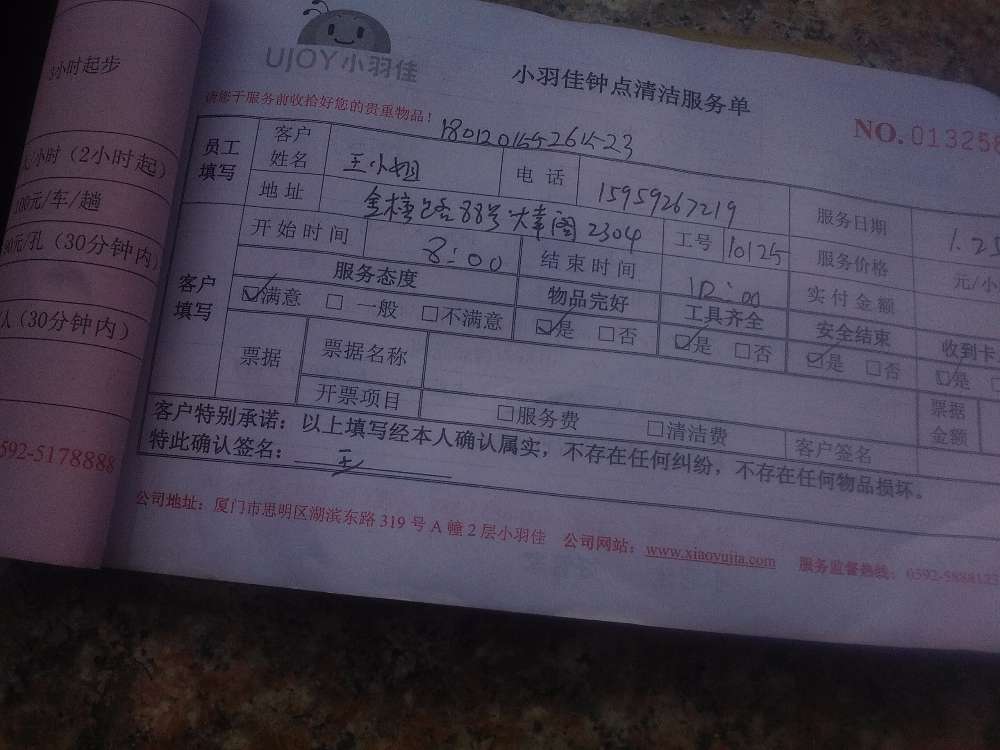 小时起步
小时（2小时起）
100元/车/趟
元/孔（30分钟内）
人（30分钟内）
592-5178888
UJOY小羽佳
小羽佳钟点清洁服务单
请您于服务前收拾好您的贵重物品！
NO. 013258
18012015526 1523
员工填写 客户姓名 王小姐 电话 15959267219 服务日期 1.25
地址 88号 2304 工号 10125 服务价格 元/小
客户填写 开始时间 8:00 结束时间 12:00 实付金额
服务态度 物品完好 工具齐全 安全结束 收到卡
☑满意 □一般 □不满意 ☑是 □否 ☑是 □否 ☑是 □否 ☑是
票据 票据名称 票据金额
开票项目 □服务费 □清洁费 客户签名
客户特别承诺：以上填写经本人确认属实，不存在任何纠纷，不存在任何物品损坏。
特此确认签名： 王
公司地址：厦门市思明区湖滨东路319号A幢2层小羽佳 公司网站：www.xiaoyujia.com 服务监督热线：0592-588812